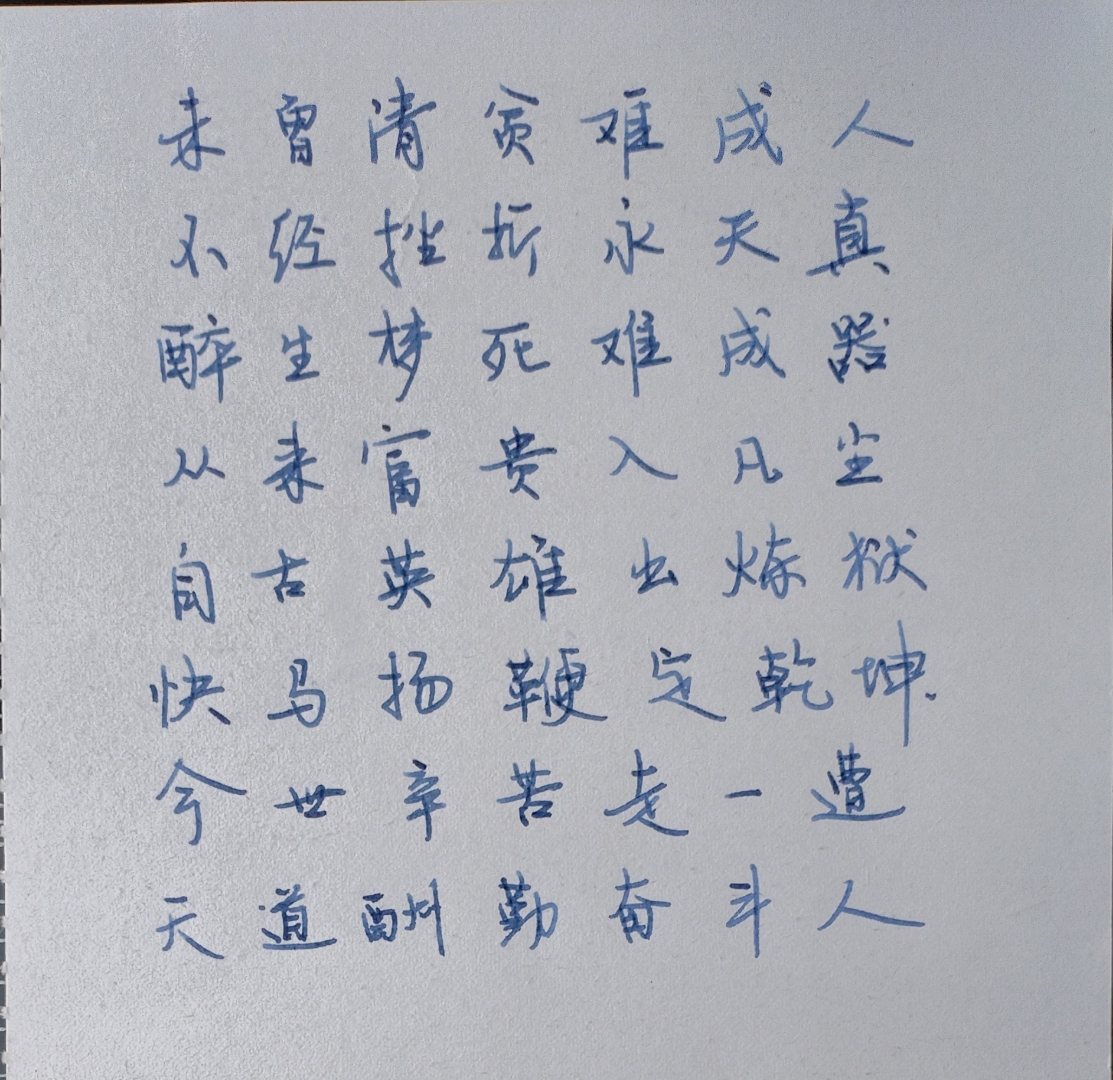 未曾清贫难成人
不经挫折永天真
醉生梦死难成器
从来富贵入凡尘
自古英雄出炼狱
快马扬鞭定乾坤.
今世辛苦走一遭
天道酬勤奋斗人